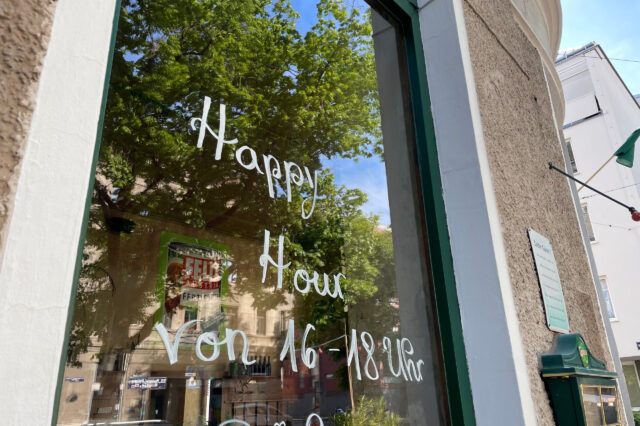 Happy
Hour
Von 16-18 Uhr